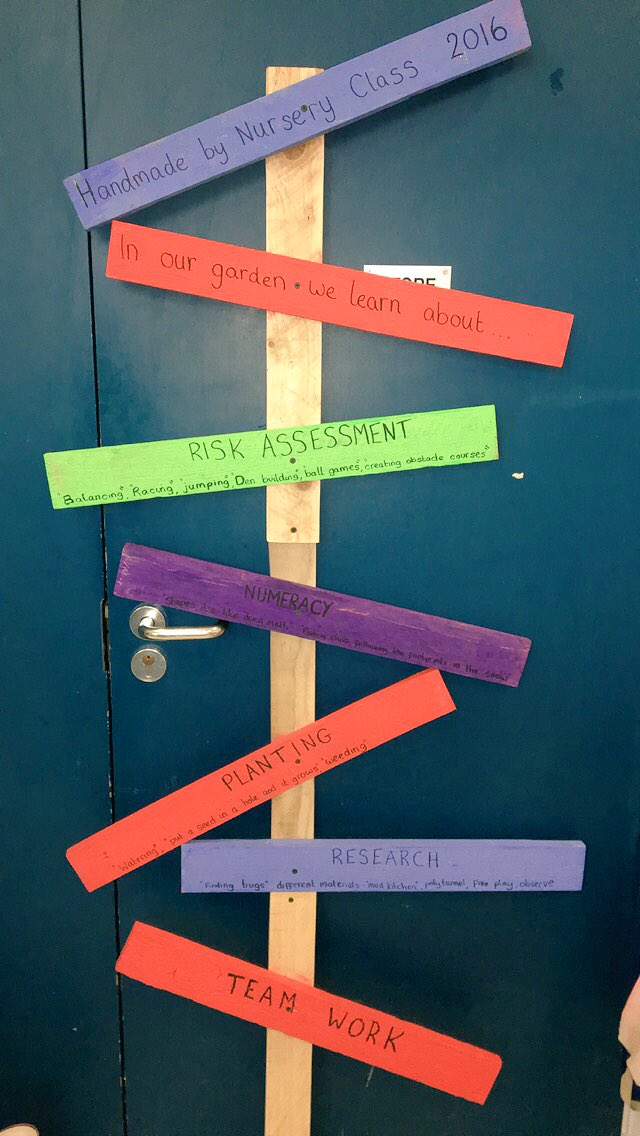 Handmade by Nursery Class 2016
In our garden we learn about...
RISK ASSESSMENT
"Balancing", "Racing", "jumping", "Den building", "ball games", "creating obstacle courses"
NUMERACY
"Shapes, it's like doing maths" "Finding clues, following the footprints in the snow"
PLANTING
"Watering", "put a seed in a hole and it grows", "weeding"
RESEARCH
"finding bugs" different materials - "mud kitchen", polytunnel, free play, observe
TEAM WORK